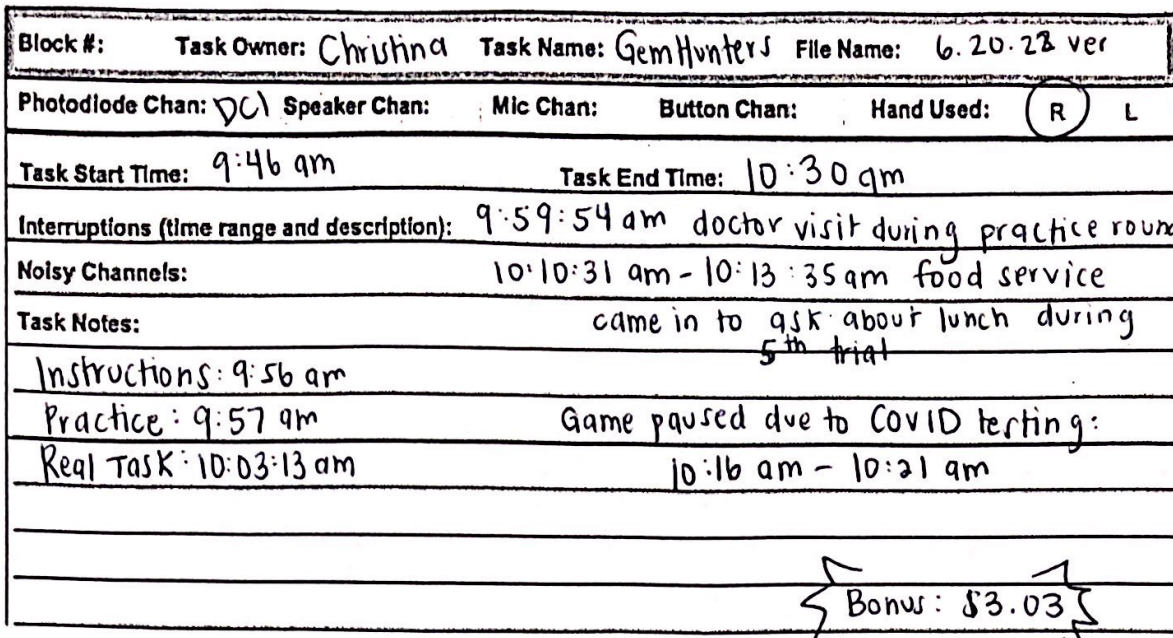 Block #: Task Owner: Christina Task Name: GemHunters File Name: 6.20.22 ver
Photodiode Chan: DC1 Speaker Chan: Mic Chan: Button Chan: Hand Used: R L
Task Start Time: 9:46 am Task End Time: 10:30 am
Interruptions (time range and description): 9:59:54 am doctor visit during practice round
Noisy Channels: 10:10:31 am - 10:13:35 am food service
Task Notes: came in to ask about lunch during
5th trial
Instructions: 9:56 am
Practice: 9:57 am Game paused due to COVID testing:
Real Task: 10:03:13 am 10:16 am - 10:21 am
Bonus: $3.03